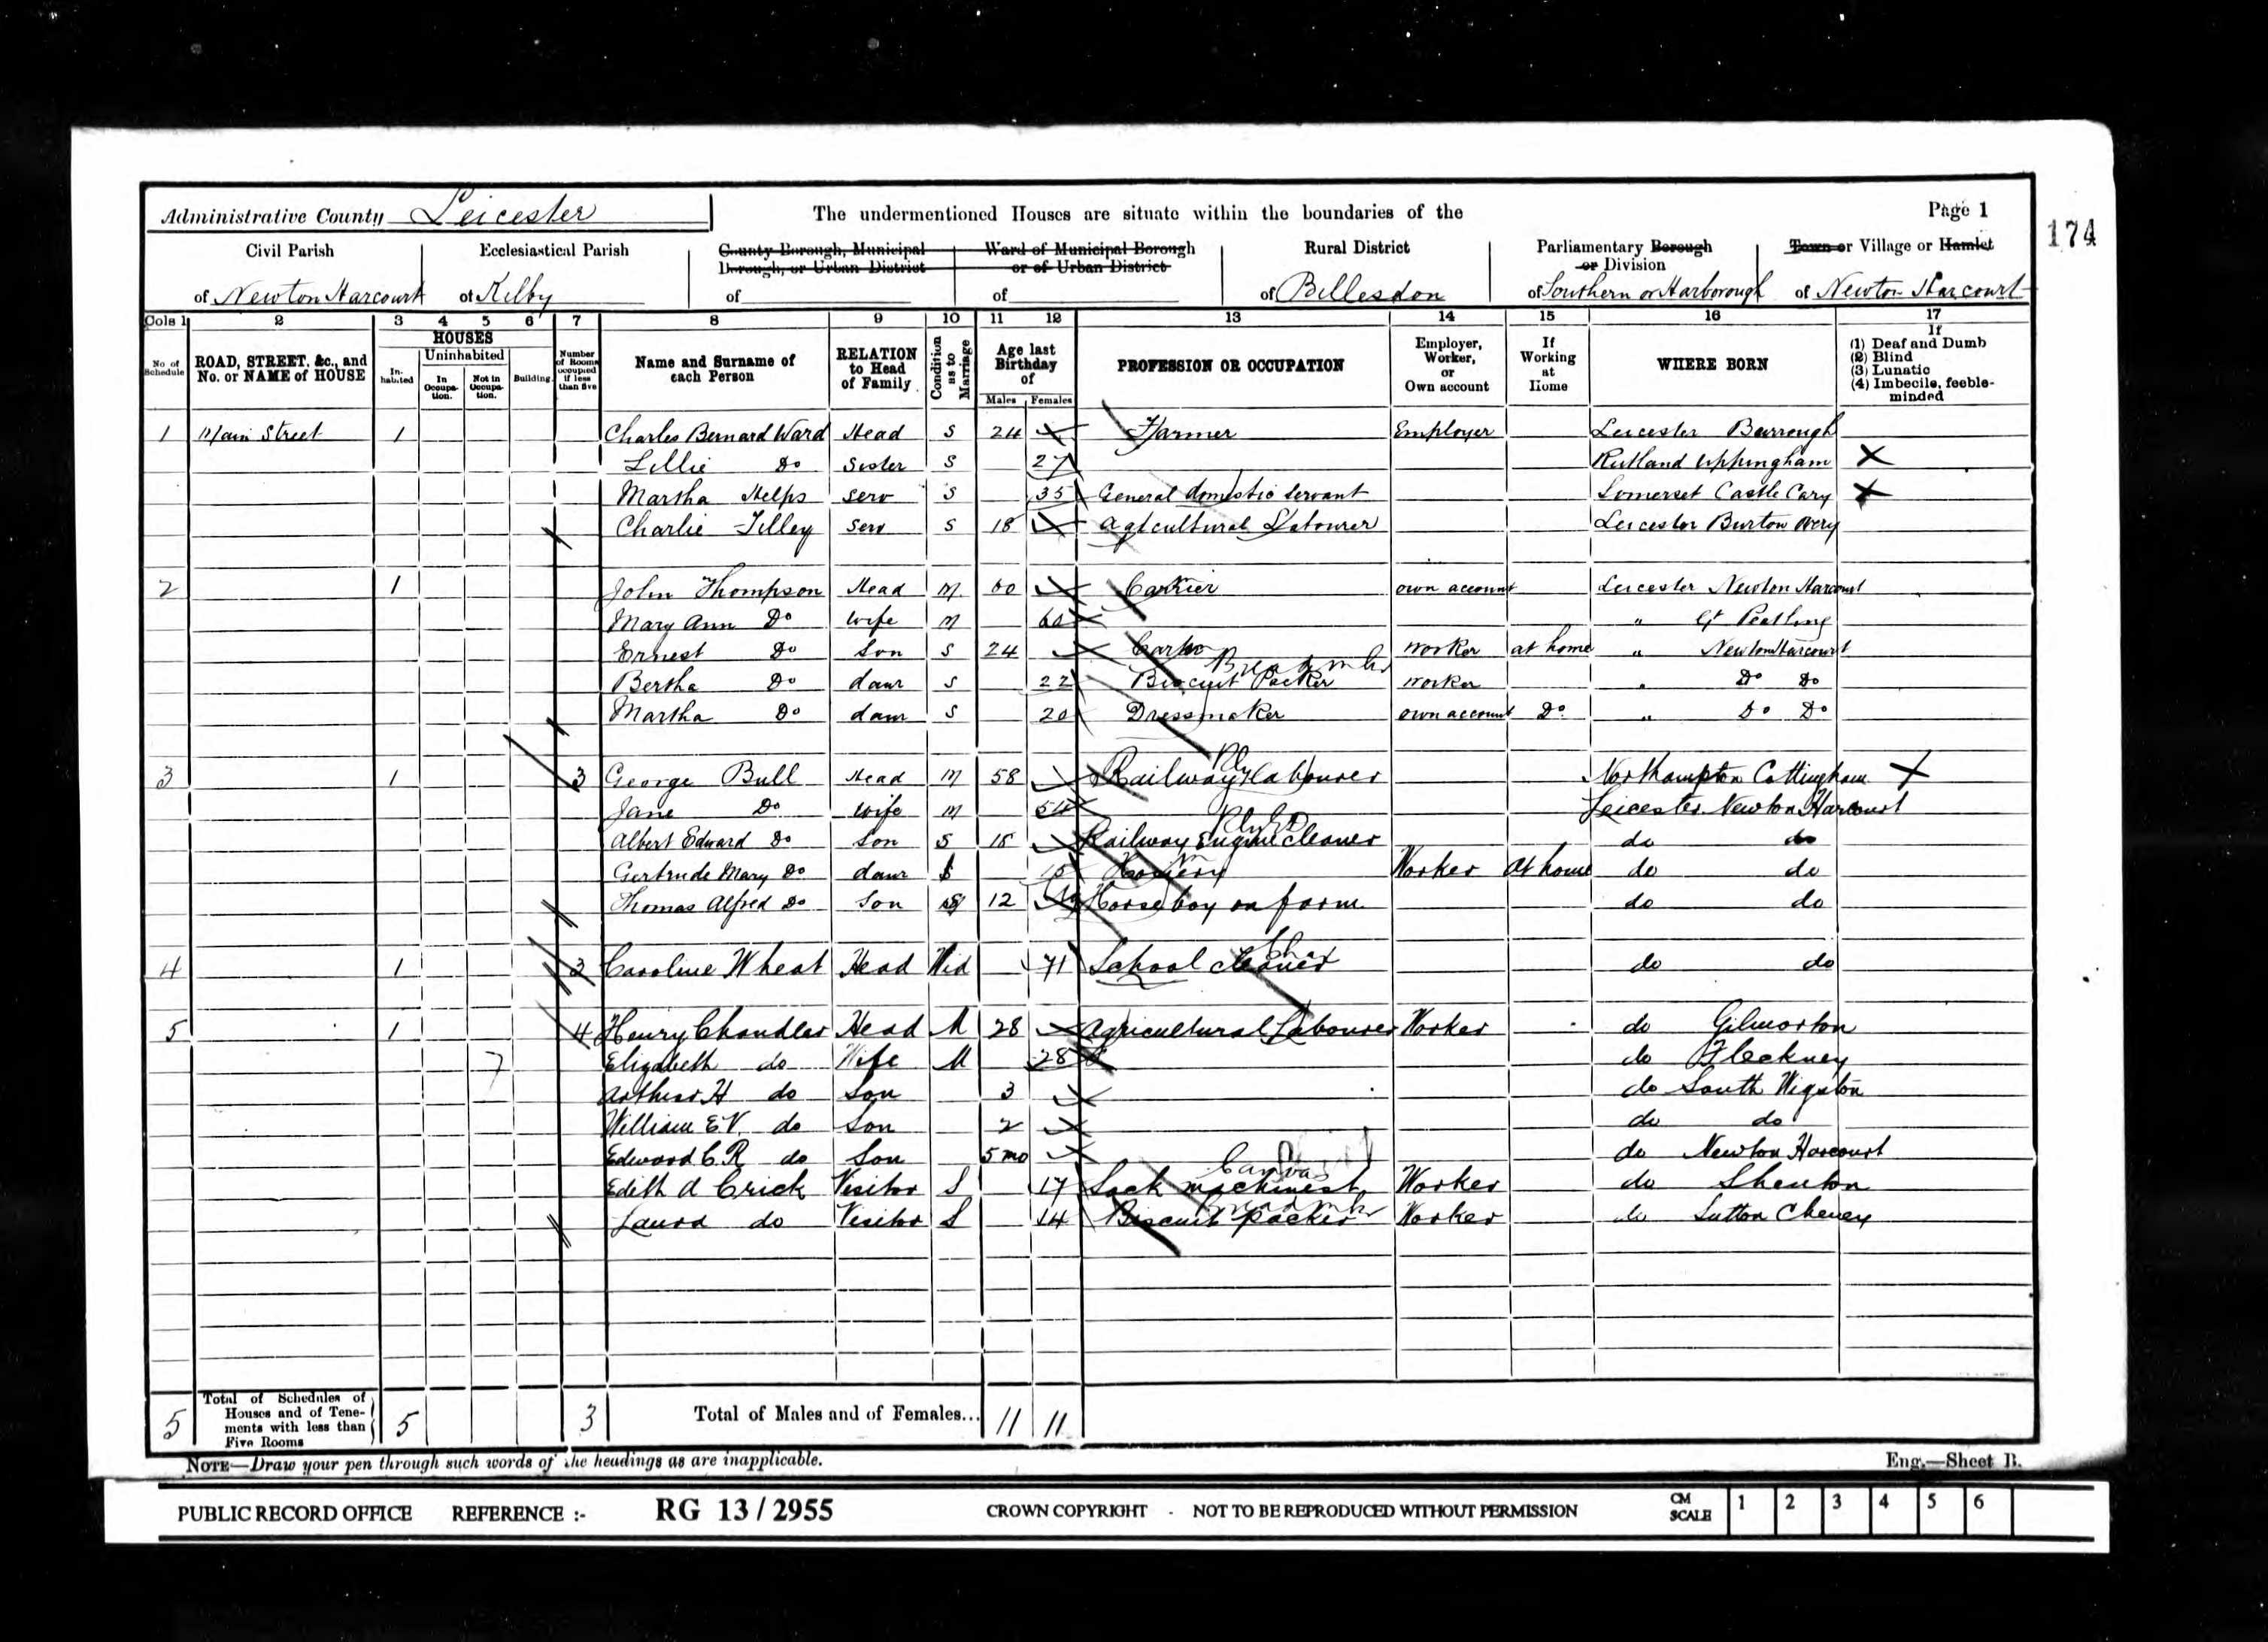 Administrative County Leicester
The undermentioned Houses are situate within the boundaries of the
Page 1
174
Civil Parish
of Newton Harcourt
Ecclesiastical Parish
of Kilby
County Borough, Municipal Borough, or Urban District
of
Ward of Municipal Borough or of Urban District
of
Rural District
of Billesdon
Parliamentary Borough or Division
of Southern or Harborough
Town or Village or Hamlet
of Newton Harcourt
Cols 1 2 3 4 5 6 7 8 9 10 11 12 13 14 15 16 17
No of Schedule
ROAD, STREET, &c., and No. or NAME of HOUSE
HOUSES
In-habited
Uninhabited
In Occupa-tion.
Not in Occupa-tion.
Building
Number of Rooms occupied if less than five
Name and Surname of each Person
RELATION to Head of Family
Condition as to Marriage
Age last Birthday of
Males Females
PROFESSION OR OCCUPATION
Employer, Worker, or Own account
If Working at Home
WHERE BORN
If
(1) Deaf and Dumb
(2) Blind
(3) Lunatic
(4) Imbecile, feeble-minded
1 Main Street 1 Charles Bernard Ward Head S 24 Farmer Employer Leicester Burrough
Lillie Do Sister S 27 Rutland Uppingham X
Martha Helps Serv S 35 General domestic Servant Somerset Castle Cary X
Charlie Tilley Serv S 18 Agricultural Labourer Leicester Burton Overy
2 1 John Thompson Head M 60 Carrier own account Leicester Newton Harcourt
Mary Ann Do Wife M 60 " Gt Peatling
Ernest Do Son S 24 Worker at home " Newton Harcourt
Bertha Do daur S 22 Biscuit Packer Worker " Do Do
Martha Do daur S 20 Dressmaker own account Do " Do Do
3 1 3 George Bull Head M 58 Railway Labourer Northampton Cottingham X
Jane Do Wife M 54 Leicester Newton Harcourt
Albert Edward Do Son S 18 Railway Engine Cleaner do do
Gertrude Mary Do daur S 15 Hosiery Worker At home do do
Thomas Alfred Do Son S 12 Horse boy on farm do do
4 1 3 Caroline Wheat Head Wid 71 School Cleaner do do
5 1 4 Henry Chandler Head M 28 Agricultural Labourer Worker do Gilmorton
Elizabeth do Wife M 28 do Fleckney
7
Arthur H do Son 3 do South Wigston
William E.V. do Son 2 do do
Edward C.R do Son 5 mo do Newton Harcourt
Canvas
Edith A Crick Visitor S 17 Sack machinist Worker do Shenton
Laura do Visitor S 14 Biscuit packer Worker do Sutton Cheney
5 Total of Schedules of Houses and of Tenements with less than Five Rooms 5 3 Total of Males and of Females... 11 11
NOTE—Draw your pen through such words of the headings as are inapplicable.
Eng.—Sheet B.
PUBLIC RECORD OFFICE REFERENCE :- RG 13 / 2955 CROWN COPYRIGHT - NOT TO BE REPRODUCED WITHOUT PERMISSION CM SCALE 1 2 3 4 5 6